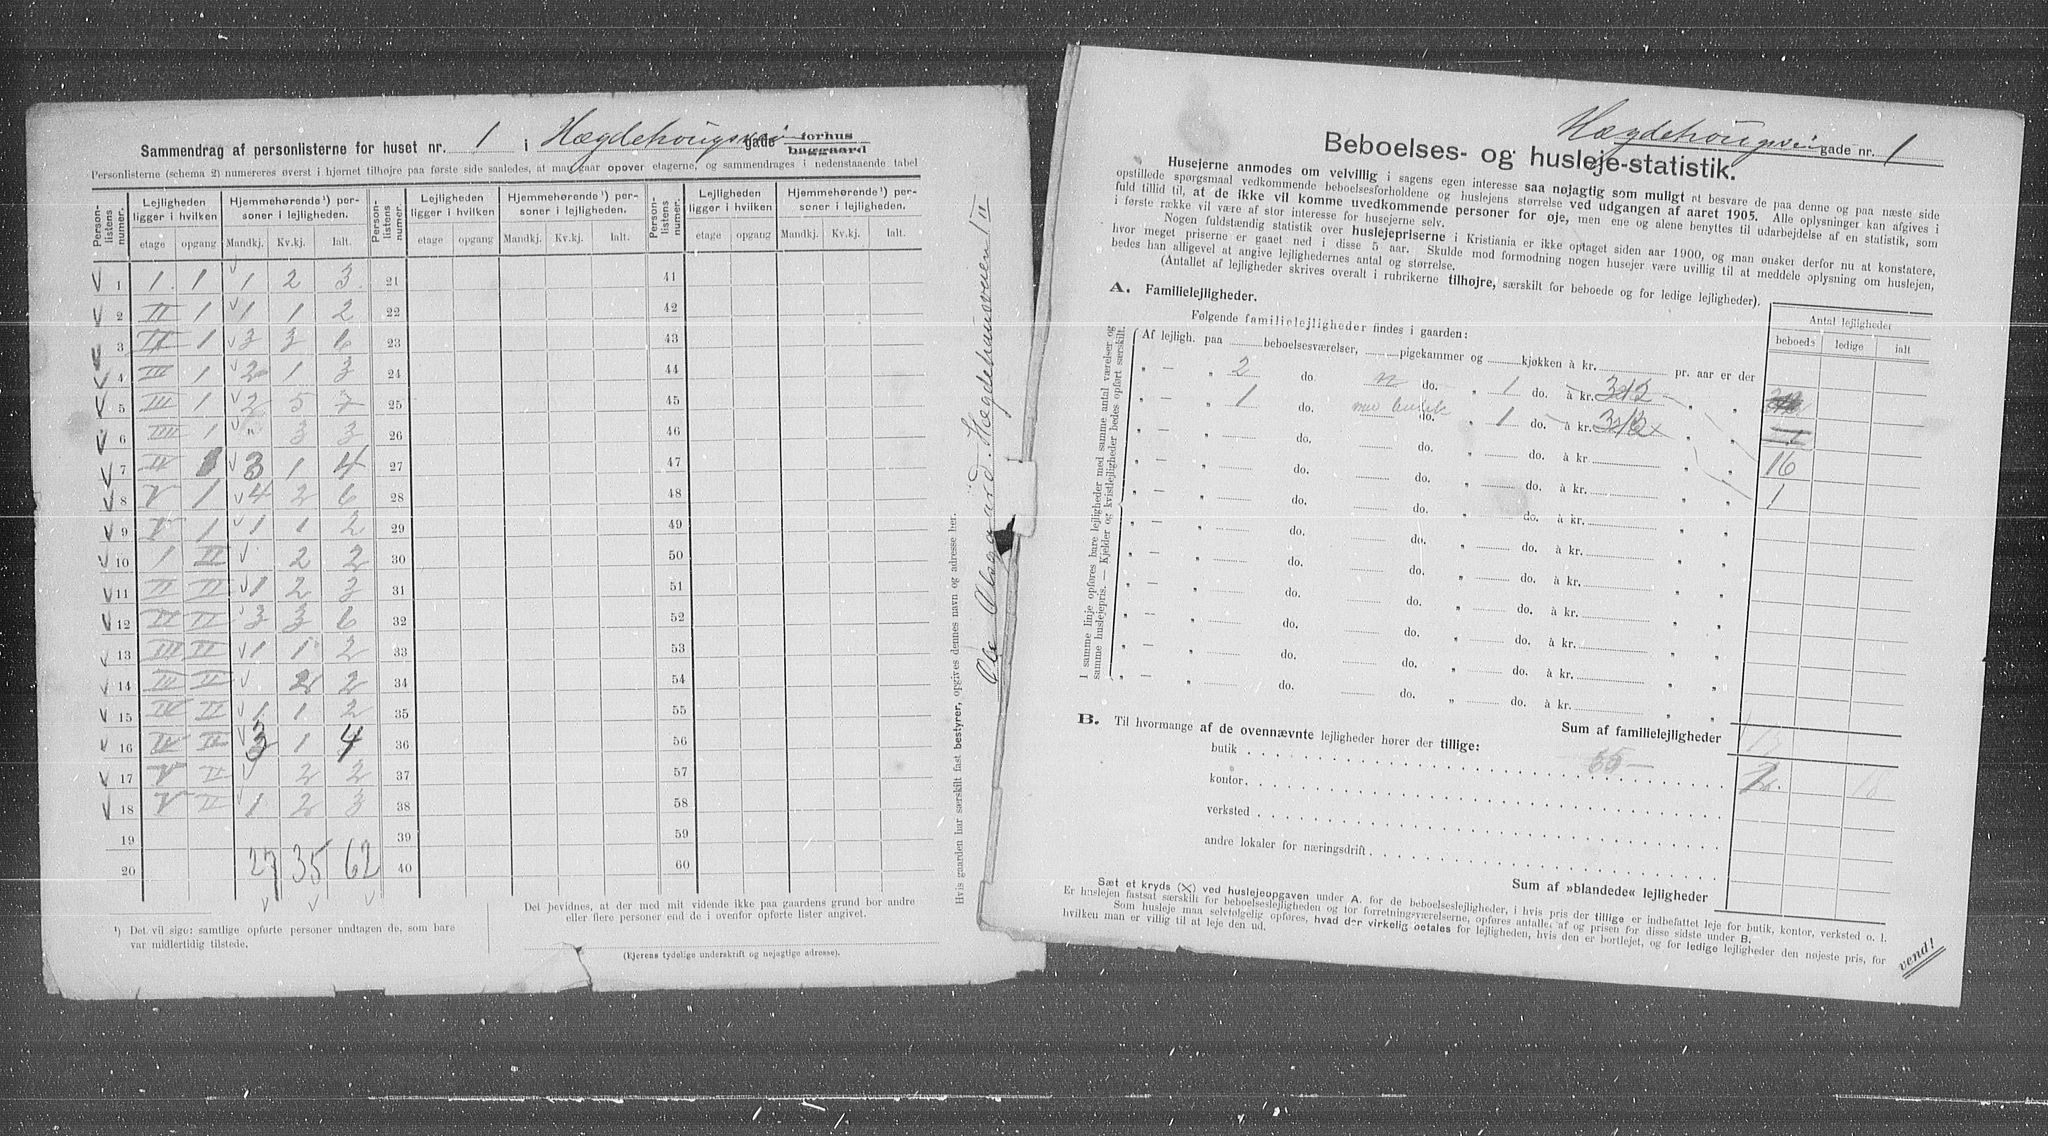 Sammendrag af personlisterne for huset nr. 1 i Hægdehougsvei gade forhus baggaard
Personlisterne (schema 2) numereres øverst i hjørnet tilhøjre paa første side saaledes, at man gaar opover etagerne, og sammendrages i nedenstaaende tabel
Person-listens numer. Lejligheden ligger i hvilken Hjemmehørende¹) personer i lejligheden. Person-listens numer. Lejligheden ligger i hvilken Hjemmehørende¹) personer i lejligheden. Person-listens numer. Lejligheden ligger i hvilken Hjemmehørende¹) personer i lejligheden.
etage opgang Mandkj. Kv.kj. Ialt. etage opgang Mandkj. Kv.kj. Ialt. etage opgang Mandkj. Kv.kj. Ialt.
1 1 1 1 2 3 21 41
2 II 1 1 1 2 22 42
3 II 1 3 3 6 23 43
4 III 1 2 1 3 24 44
5 III 1 2 5 7 25 45
6 IIII 1 " 3 3 26 46
7 IV 1 3 1 4 27 47
8 V 1 4 2 6 28 48
9 V 1 1 1 2 29 49
10 1 II 2 2 30 50
11 II II 1 2 3 31 51
12 II II 3 3 6 32 52
13 III II 1 1 2 33 53
14 III II 2 2 34 54
15 IV II 1 1 2 35 55
16 IV II 3 1 4 36 56
17 V II 2 2 37 57
18 V II 1 2 3 38 58
19 39 59
20 27 35 62 40 60
¹) Det vil sige: samtlige opførte personer undtagen de, som bare var midlertidig tilstede.
Det bevidnes, at der med mit vidende ikke paa gaardens grund bor andre
eller flere personer end de i ovenfor opførte lister angivet.
(Ejerens tydelige underskrift og nøjagtige adresse).
Hvis gaarden har særskilt fast bestyrer, opgives dennes navn og adresse her.
Ole Aasgaard. Hægdehaugsveien 1 III
Hægdehougsvei gade nr. 1
Beboelses- og husleje-statistik.
Husejerne anmodes om velvillig i sagens egen interesse saa nøjagtig som muligt at besvare de paa denne og paa næste side
opstillede spørgsmaal vedkommende beboelsesforholdene og huslejens størrelse ved udgangen af aaret 1905. Alle oplysninger kan afgives i
fuld tillid til, at de ikke vil komme uvedkommende personer for øje, men ene og alene benyttes til udarbejdelse af en statistik, som
i første række vil være af stor interesse for husejerne selv.
Nogen fuldstændig statistik over huslejepriserne i Kristiania er ikke optaget siden aar 1900, og man ønsker derfor nu at konstatere,
hvor meget priserne er gaaet ned i disse 5 aar. Skulde mod formodning nogen husejer være uvillig til at meddele oplysning om huslejen,
bedes han alligevel at angive lejlighedernes antal og størrelse.
(Antallet af lejligheder skrives overalt i rubrikerne tilhøjre, særskilt for beboede og for ledige lejligheder).
A. Familielejligheder.
Følgende familielejligheder findes i gaarden:
Antal lejligheder
beboede ledige ialt
I samme linje opføres bare lejligheder med samme antal værelser og
samme huslejepris. — Kjelder og kvistlejligheder bedes opført særskilt.
Af lejligh. paa beboelsesværelser, pigekammer og kjøkken à kr. pr. aar er der
" — " 2 do. " do. " 1 do. à kr. 312 — " "
" — " 1 do. med butik do. " 1 do. à kr. 312 x " " 1
" — " do. do. " do. à kr. " " 16
" — " do. do. " do. à kr. " " 1
" — " do. do. " do. à kr. " "
" — " do. do. " do. à kr. " "
" — " do. do. " do. à kr. " "
" — " do. do. " do. à kr. " "
" — " do. do. " do. à kr. " "
" — " do. do. " do. à kr. " "
" — " do. do. " do. à kr. " "
Sum af familielejligheder 17
B. Til hvormange af de ovennævnte lejligheder hører der tillige:
butik 55 — 18
kontor
verksted
andre lokaler for næringsdrift
Sum af »blandede« lejligheder
Sæt et kryds (X) ved huslejeopgaven under A. for de beboelseslejligheder, i hvis pris der tillige er indbefattet leje for butik, kontor, verksted o. l.
Er huslejen fastsat særskilt for beboelseslejligheden og for forretningsværelserne, opføres antallet af og prisen for disse sidste under B.
Som husleje maa selvfølgelig opføres, hvad der virkelig betales for lejligheden, hvis den er bortlejet, og for ledige lejligheder den nøjeste pris, for
hvilken man er villig til at leje den ud.
vend!